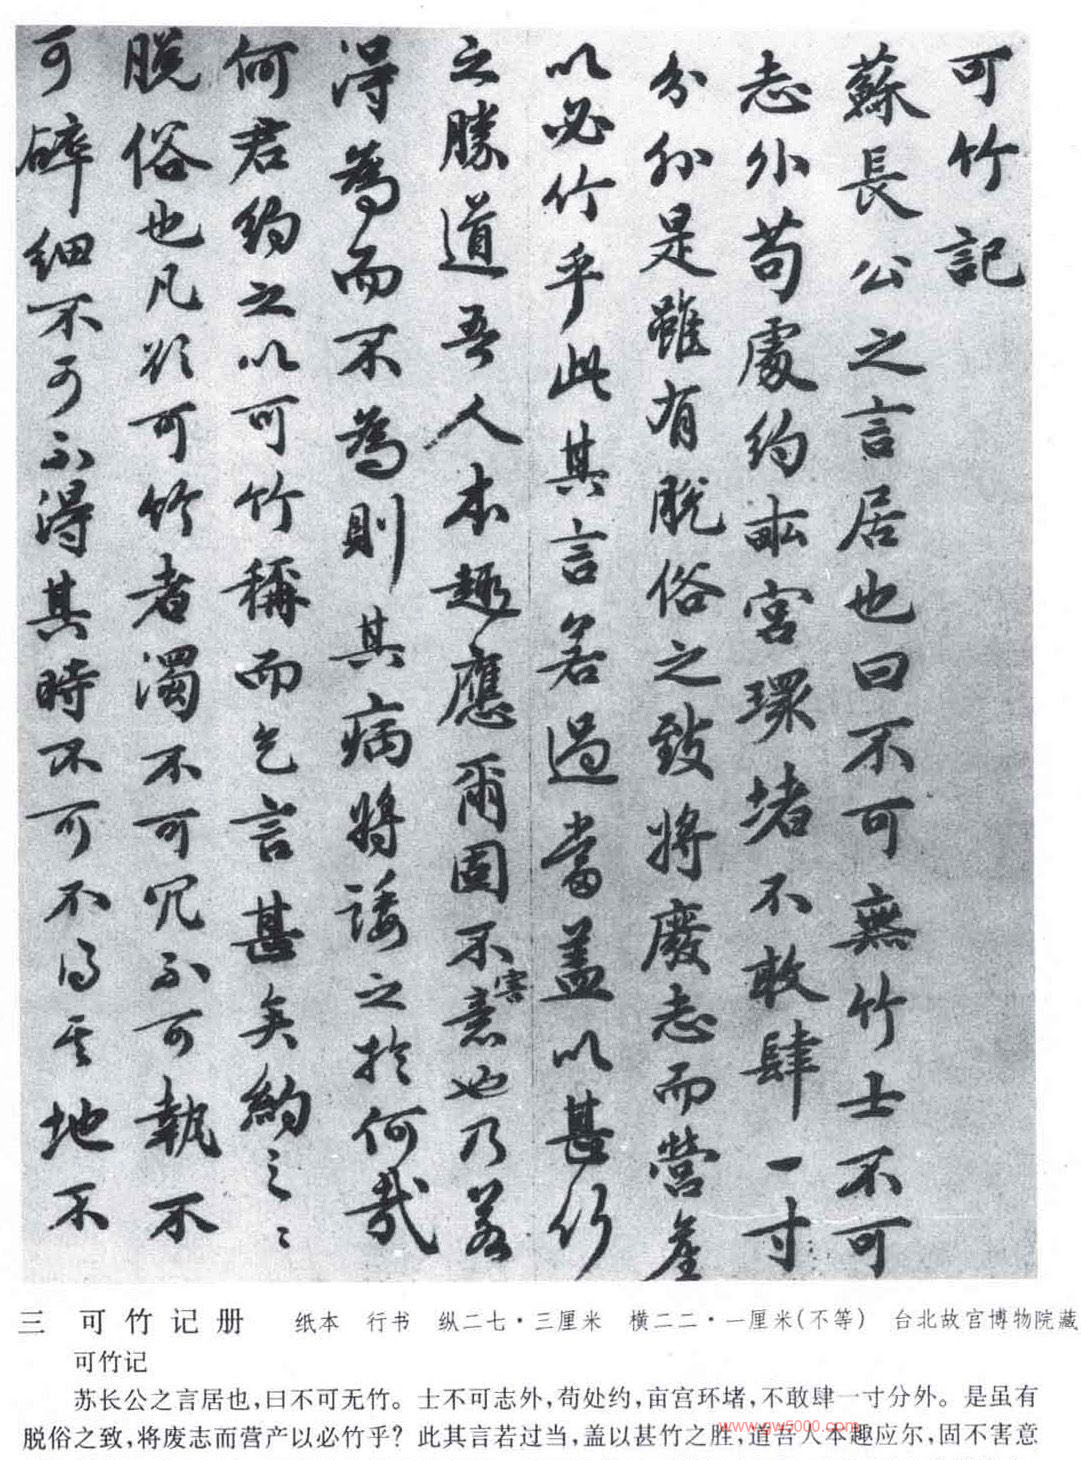 可竹記
蘇長公之言居也曰不可無竹士不可
志外苟處約畝宮環堵不敢肆一寸
分外是雖有脫俗之致將廢志而營產
以必竹乎此其言若過當蓋以甚竹
之勝道吾人本趣應爾固不害意也乃若
得為而不為則其病將諉之於何哉
何君約之以可竹稱而乞言甚矣約之之
脫俗也凡欲可竹者濁不可冗不可執不
可碎細不可不得其時不可不得其地不
三 可竹记册 纸本 行书 纵二七·三厘米 横二二·一厘米(不等) 台北故宫博物院藏
可竹记
苏长公之言居也,曰不可无竹。士不可志外,苟处约,亩宫环堵,不敢肆一寸分外。是虽有
脱俗之致,将废志而营产以必竹乎?此其言若过当,盖以甚竹之胜,道吾人本趣应尔,固不害意
www.gw5000.com